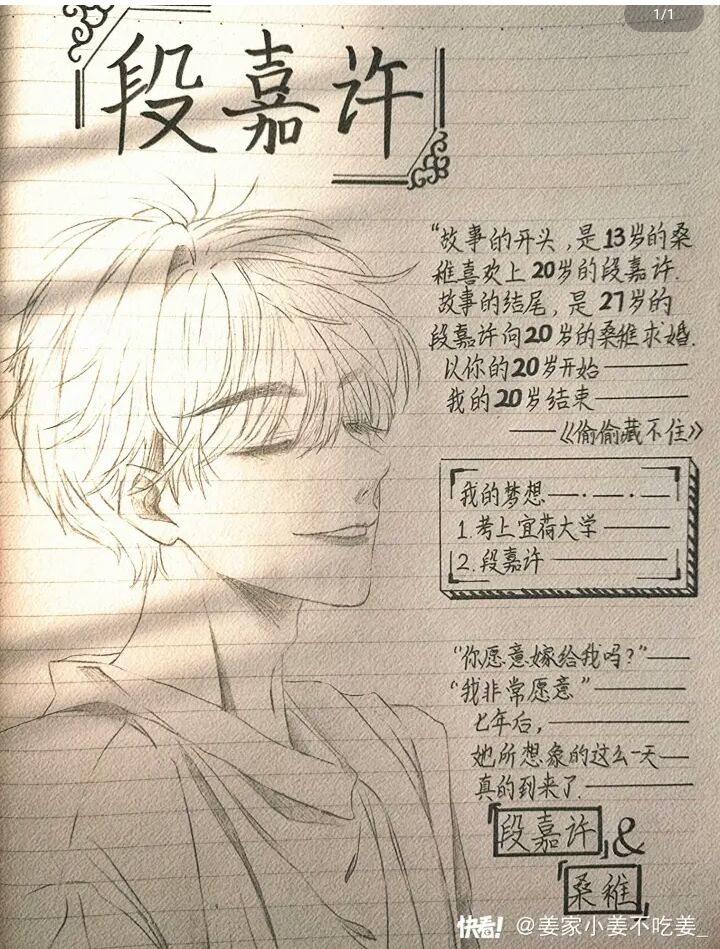 1/1
段嘉许
“故事的开头，是13岁的桑
稚喜欢上20岁的段嘉许.
故事的结尾，是27岁的
段嘉许向20岁的桑稚求婚.
以你的20岁开始————
我的20岁结束————
——《偷偷藏不住》
我的梦想—·—·—
1.考上宜荷大学———
2.段嘉许————
“你愿意嫁给我吗？”——
“我非常愿意”————
七年后，————
她所想象的这么一天—
真的到来了.————
段嘉许 &
桑稚
快看! @姜家小姜不吃姜_